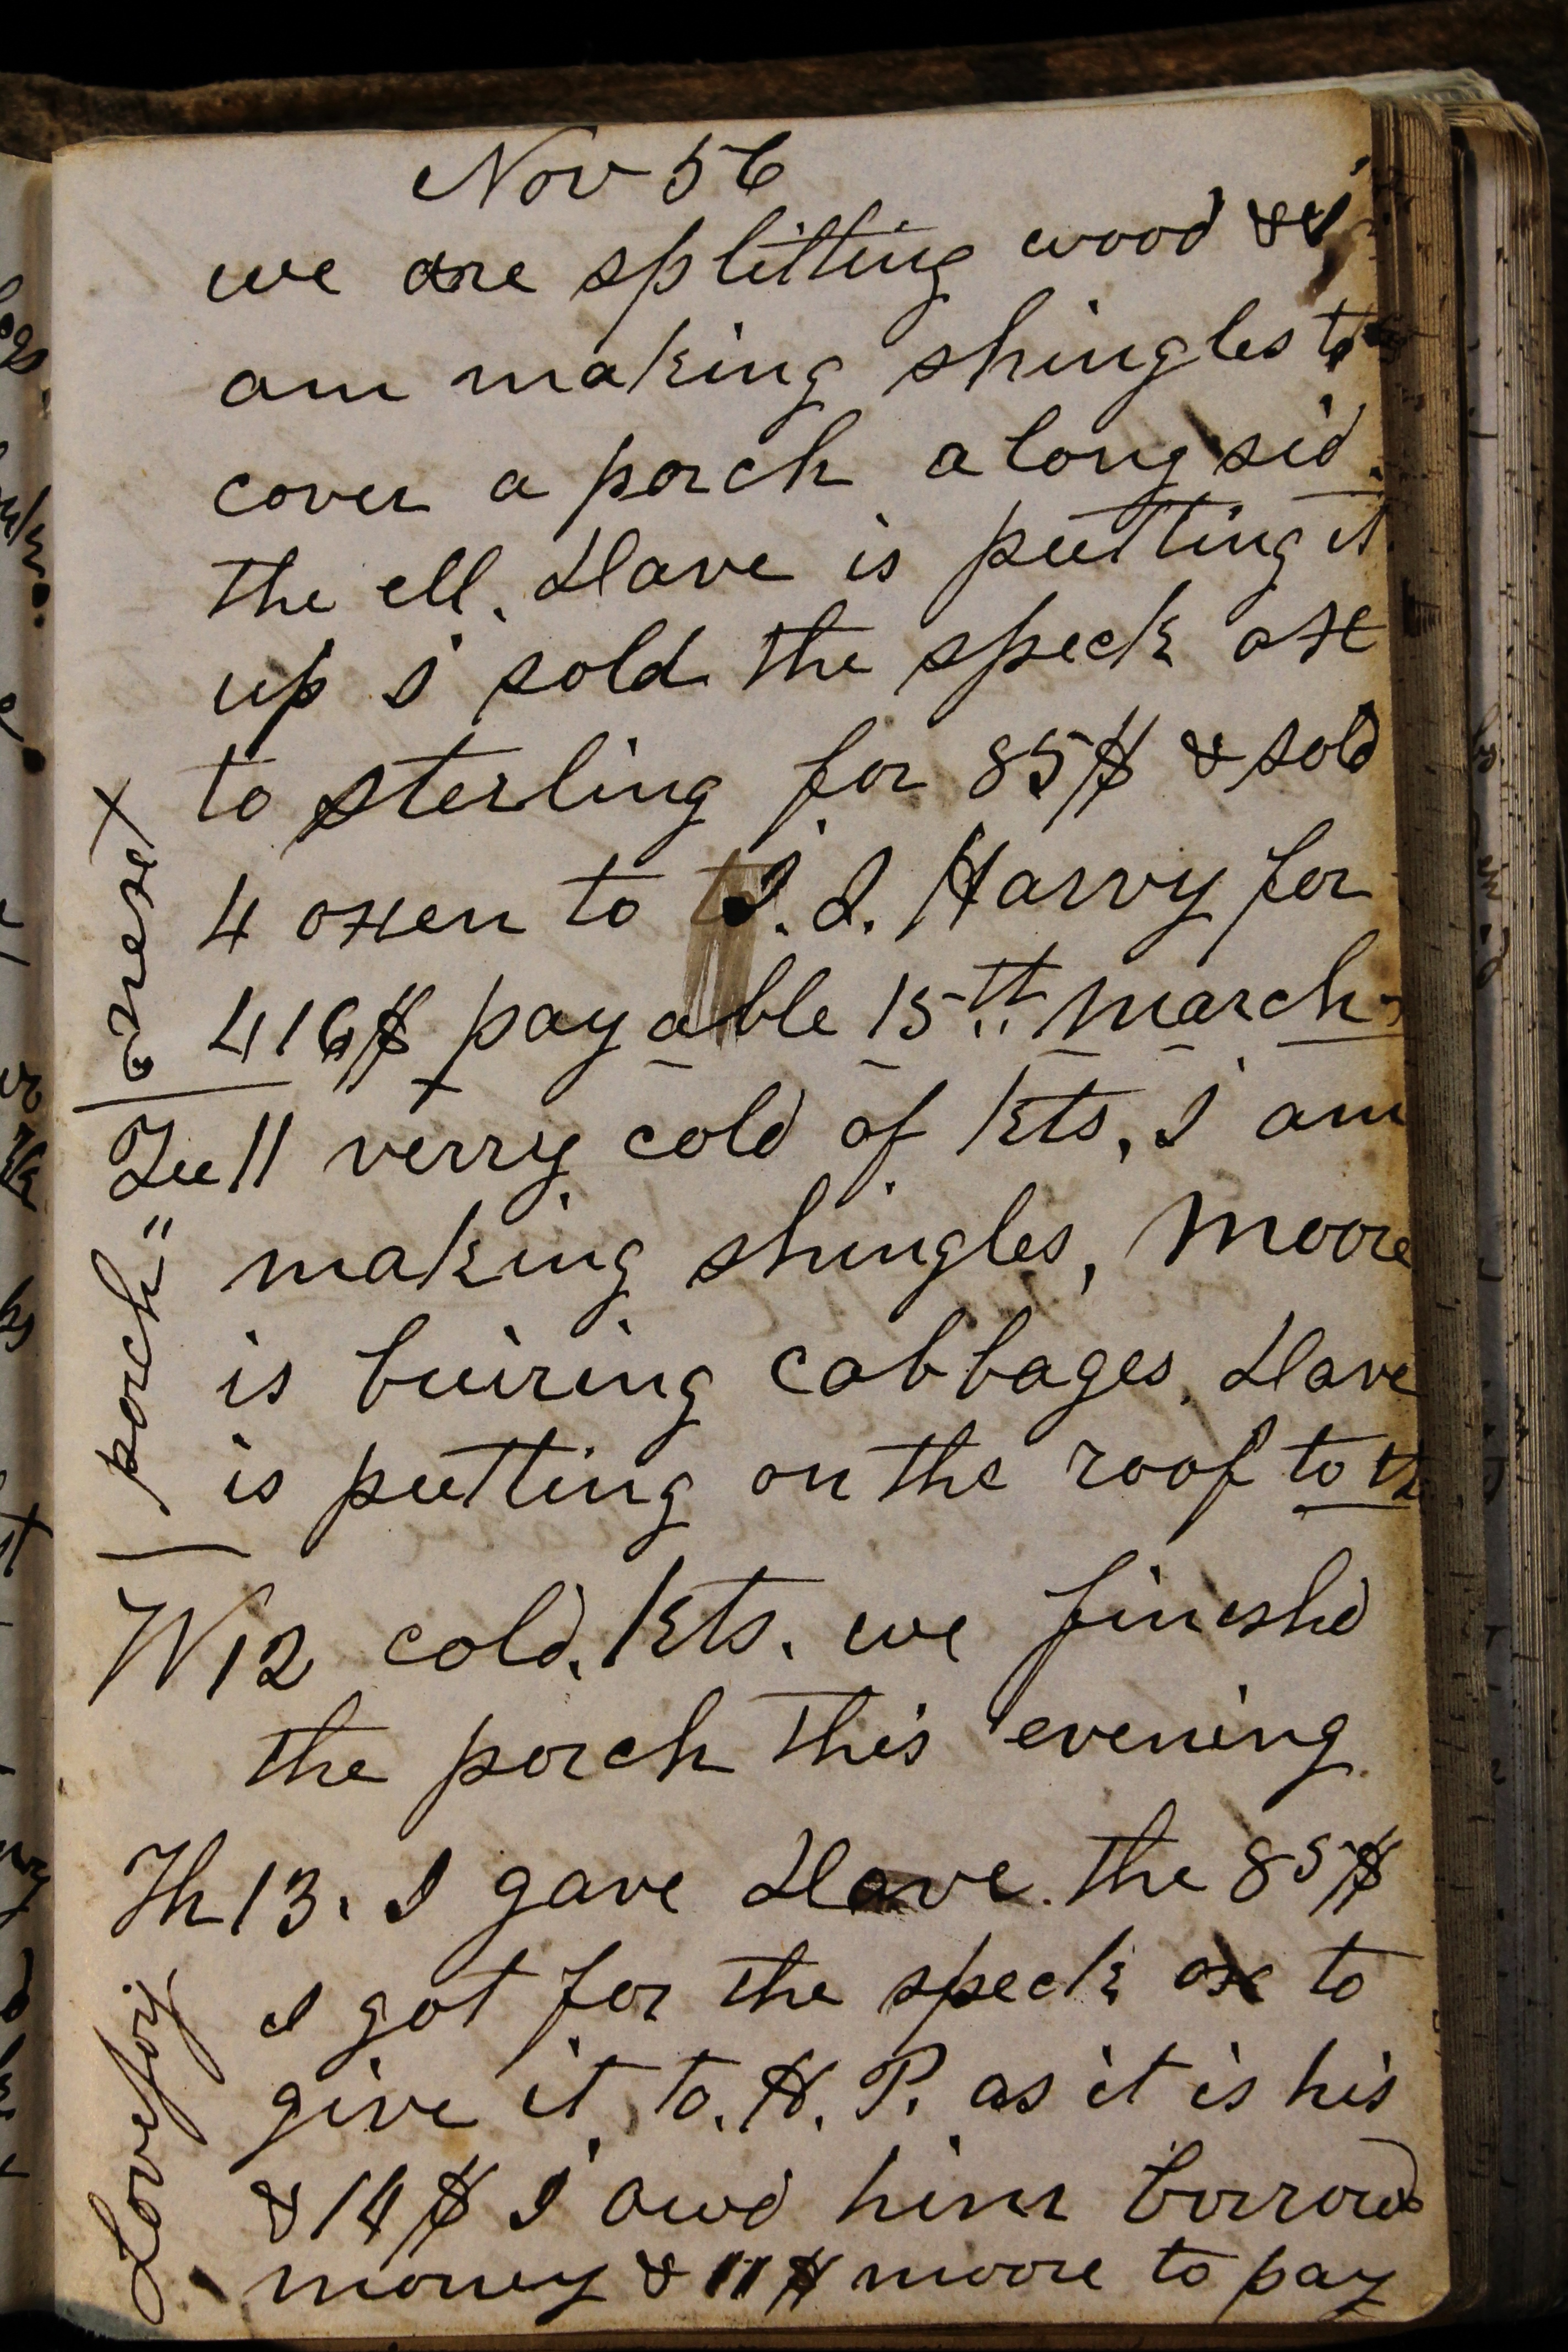 Nov 56
we are splitting wood & I
am making shingles to
cover a porch along sid
the ell. Dave is putting it
up I sold the speck oxe
to sterling for 85$ & sold
4 oxen to J. J. Harvy for
416$ payable 15th march
next
Tu 11 verry cold of kts, I am
making shingles, Moore
is buiring cabbages, Dave
is putting on the roof to th
porch"
W 12 cold. kts. we finishd
the porch this evening
Th 13. I gave Dave the 85$
I got for the speck oxe to
give it to. H. P. as it is his
& 14$ I owd him borrowd
money & 11$ moore to pay
Lovejoy